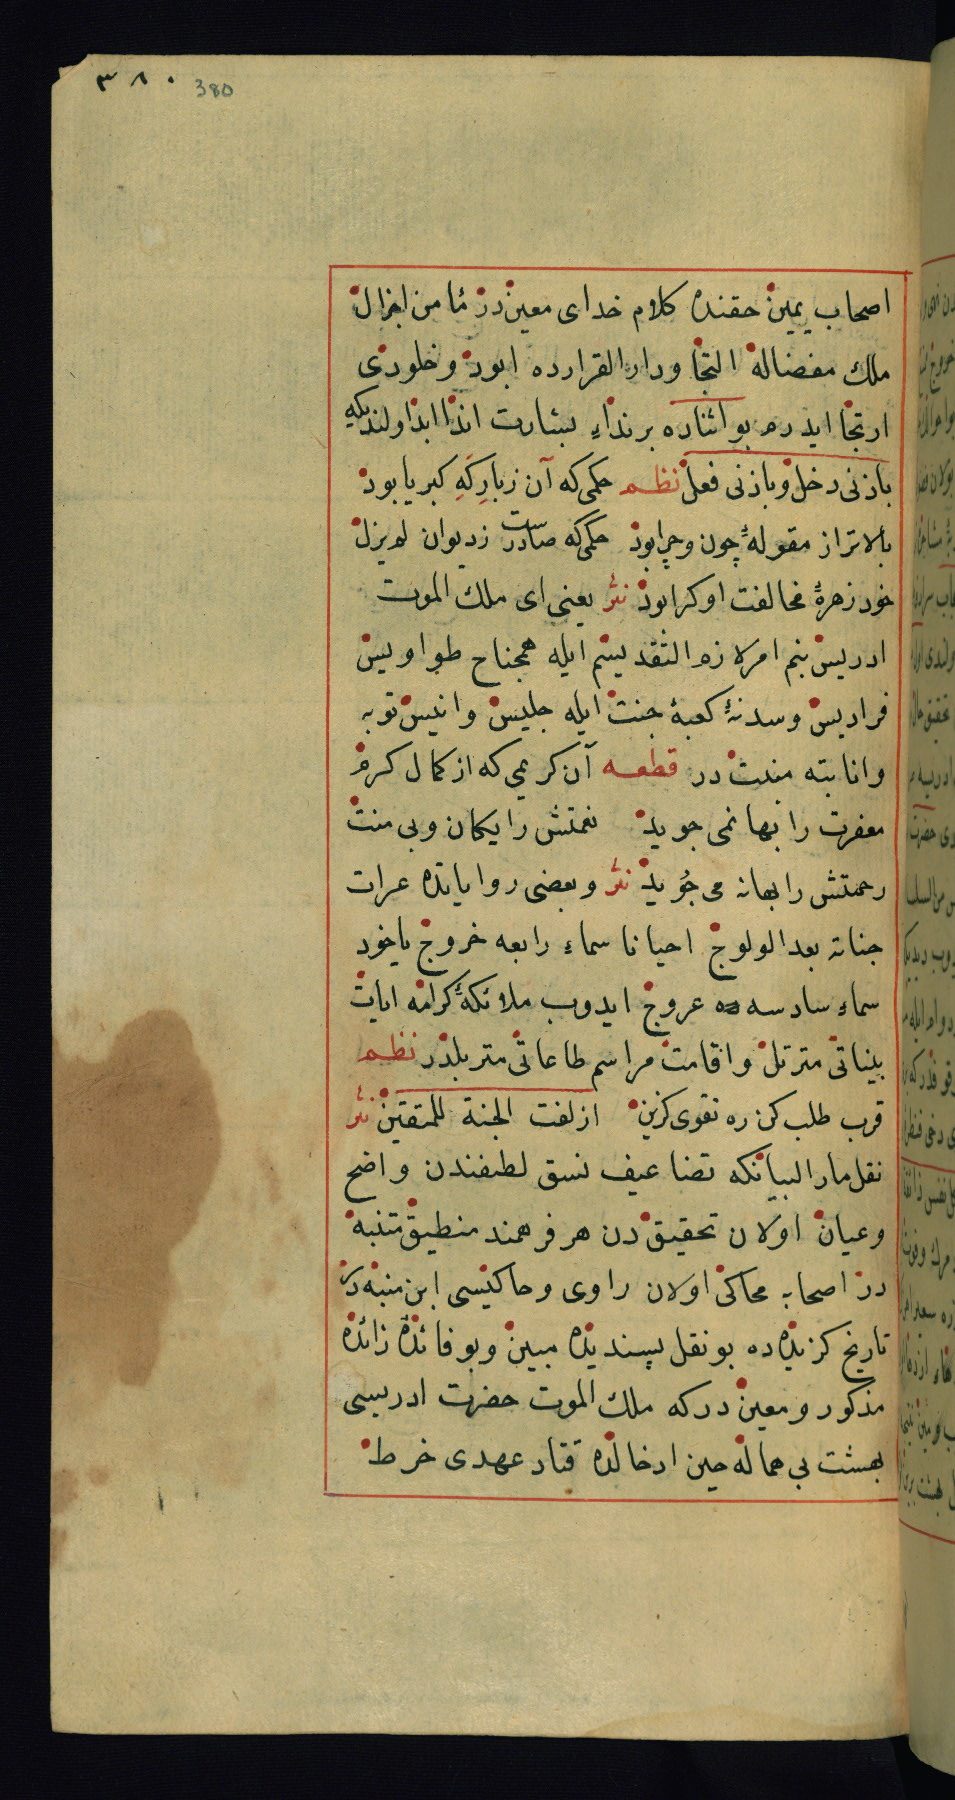 ٣٨٠ 380
اصحاب يمين حقنده كلام خداى معين در ئامن اخزال
ملك مفضاله التجا ودار القرارده ابود وخلودى
ارتجا ايدرم بو اثناده برنداء بشارت اندا ابذا ولندىكه
باذنى دخل وباذنى فعل نظم حكمى كه آن زباركه كبريا بود
بالاتر از مقولهٔ چون وچرا بود حكمى كه صادرست زديوان لم يزل
خود زهرهٔ مخالفت او كرا بود نثر يعنى اى ملك الموت
ادريس بنم امر لازم التقديسم ايله همجناح طواويس
فراديس وسدنهٔ كعبهٔ جنت ايله جليس وانيس توبه
وانابته منبت در قطعه آن كريمى كه از كمال كرم
مغفرت را بها نمى جويد نعمتش رايكان وبى منت
رحمتش را بهانه مى جُويد نثر وبعضى رواياتده عرات
جنانه بعد الولوج احيانا سماء رابعه خروج ياخود
سماء سادسه ده عروج ايدوب ملائكهٔ كرامه ايات
بيناتى مترتل واقامت مراسم طاعاتى متربلدر نظم
قرب طلب كن ره تقوى كزين ازلفت الجنة للمتقين نثر
نقل مار البيانكه تضاعيف نسق لطفندن واضح
وعيان اولان تحقيق دن هر فرهمند منطيق متنبه
در اصحابه محاكى اولان راوى وحاكيسى ابن منبه در
تاريخ كزيده ده بو نقل پسنديده مبين وبو فائدهٔ زائده
مذكور ومعين در كه ملك الموت حضرت ادريسى
بهشت بى هماله حين ادخالده قتاد عهدى خرط